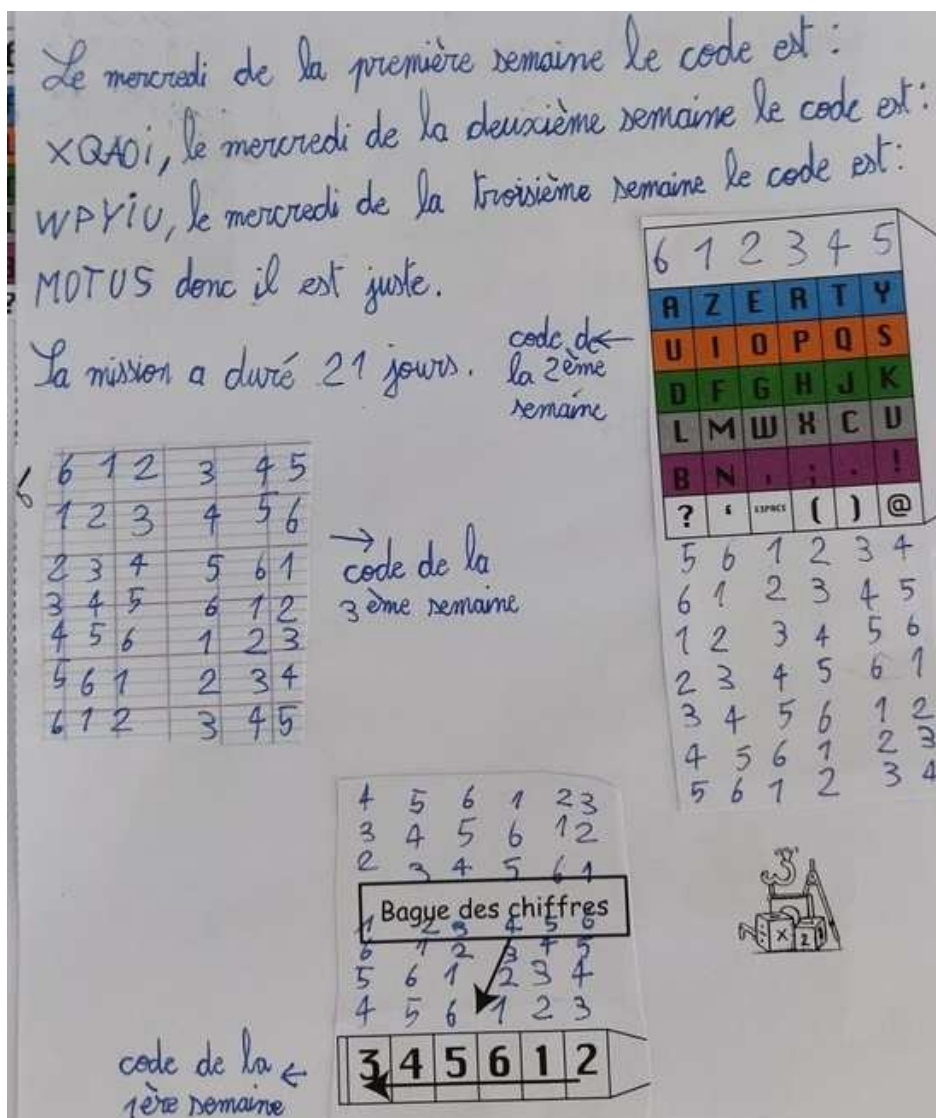 Le mercredi de la première semaine le code est :
XQAOi, le mercredi de la deuxième semaine le code est :
WPYiU, le mercredi de la troisième semaine le code est :
MOTUS donc il est juste.
La mission a duré 21 jours.
code de ←
la 2ème
semaine
6 1 2 3 4 5
A Z E R T Y
U I O P Q S
D F G H J K
L M W X C V
B N , ; . !
? ‘ ESPACE ( ) @
5 6 1 2 3 4
6 1 2 3 4 5
1 2 3 4 5 6
2 3 4 5 6 1
3 4 5 6 1 2
4 5 6 1 2 3
5 6 1 2 3 4
6 1 2 3 4 5
1 2 3 4 5 6
2 3 4 5 6 1
3 4 5 6 1 2
4 5 6 1 2 3
5 6 1 2 3 4
6 1 2 3 4 5
→
code de la
3ème semaine
4 5 6 1 2 3
3 4 5 6 1 2
2 3 4 5 6 1
Bague des chiffres
1 2 3 4 5 6
6 1 2 3 4 5
5 6 1 2 3 4
4 5 6 1 2 3
3 4 5 6 1 2
code de la ←
1ère semaine
3
x 2